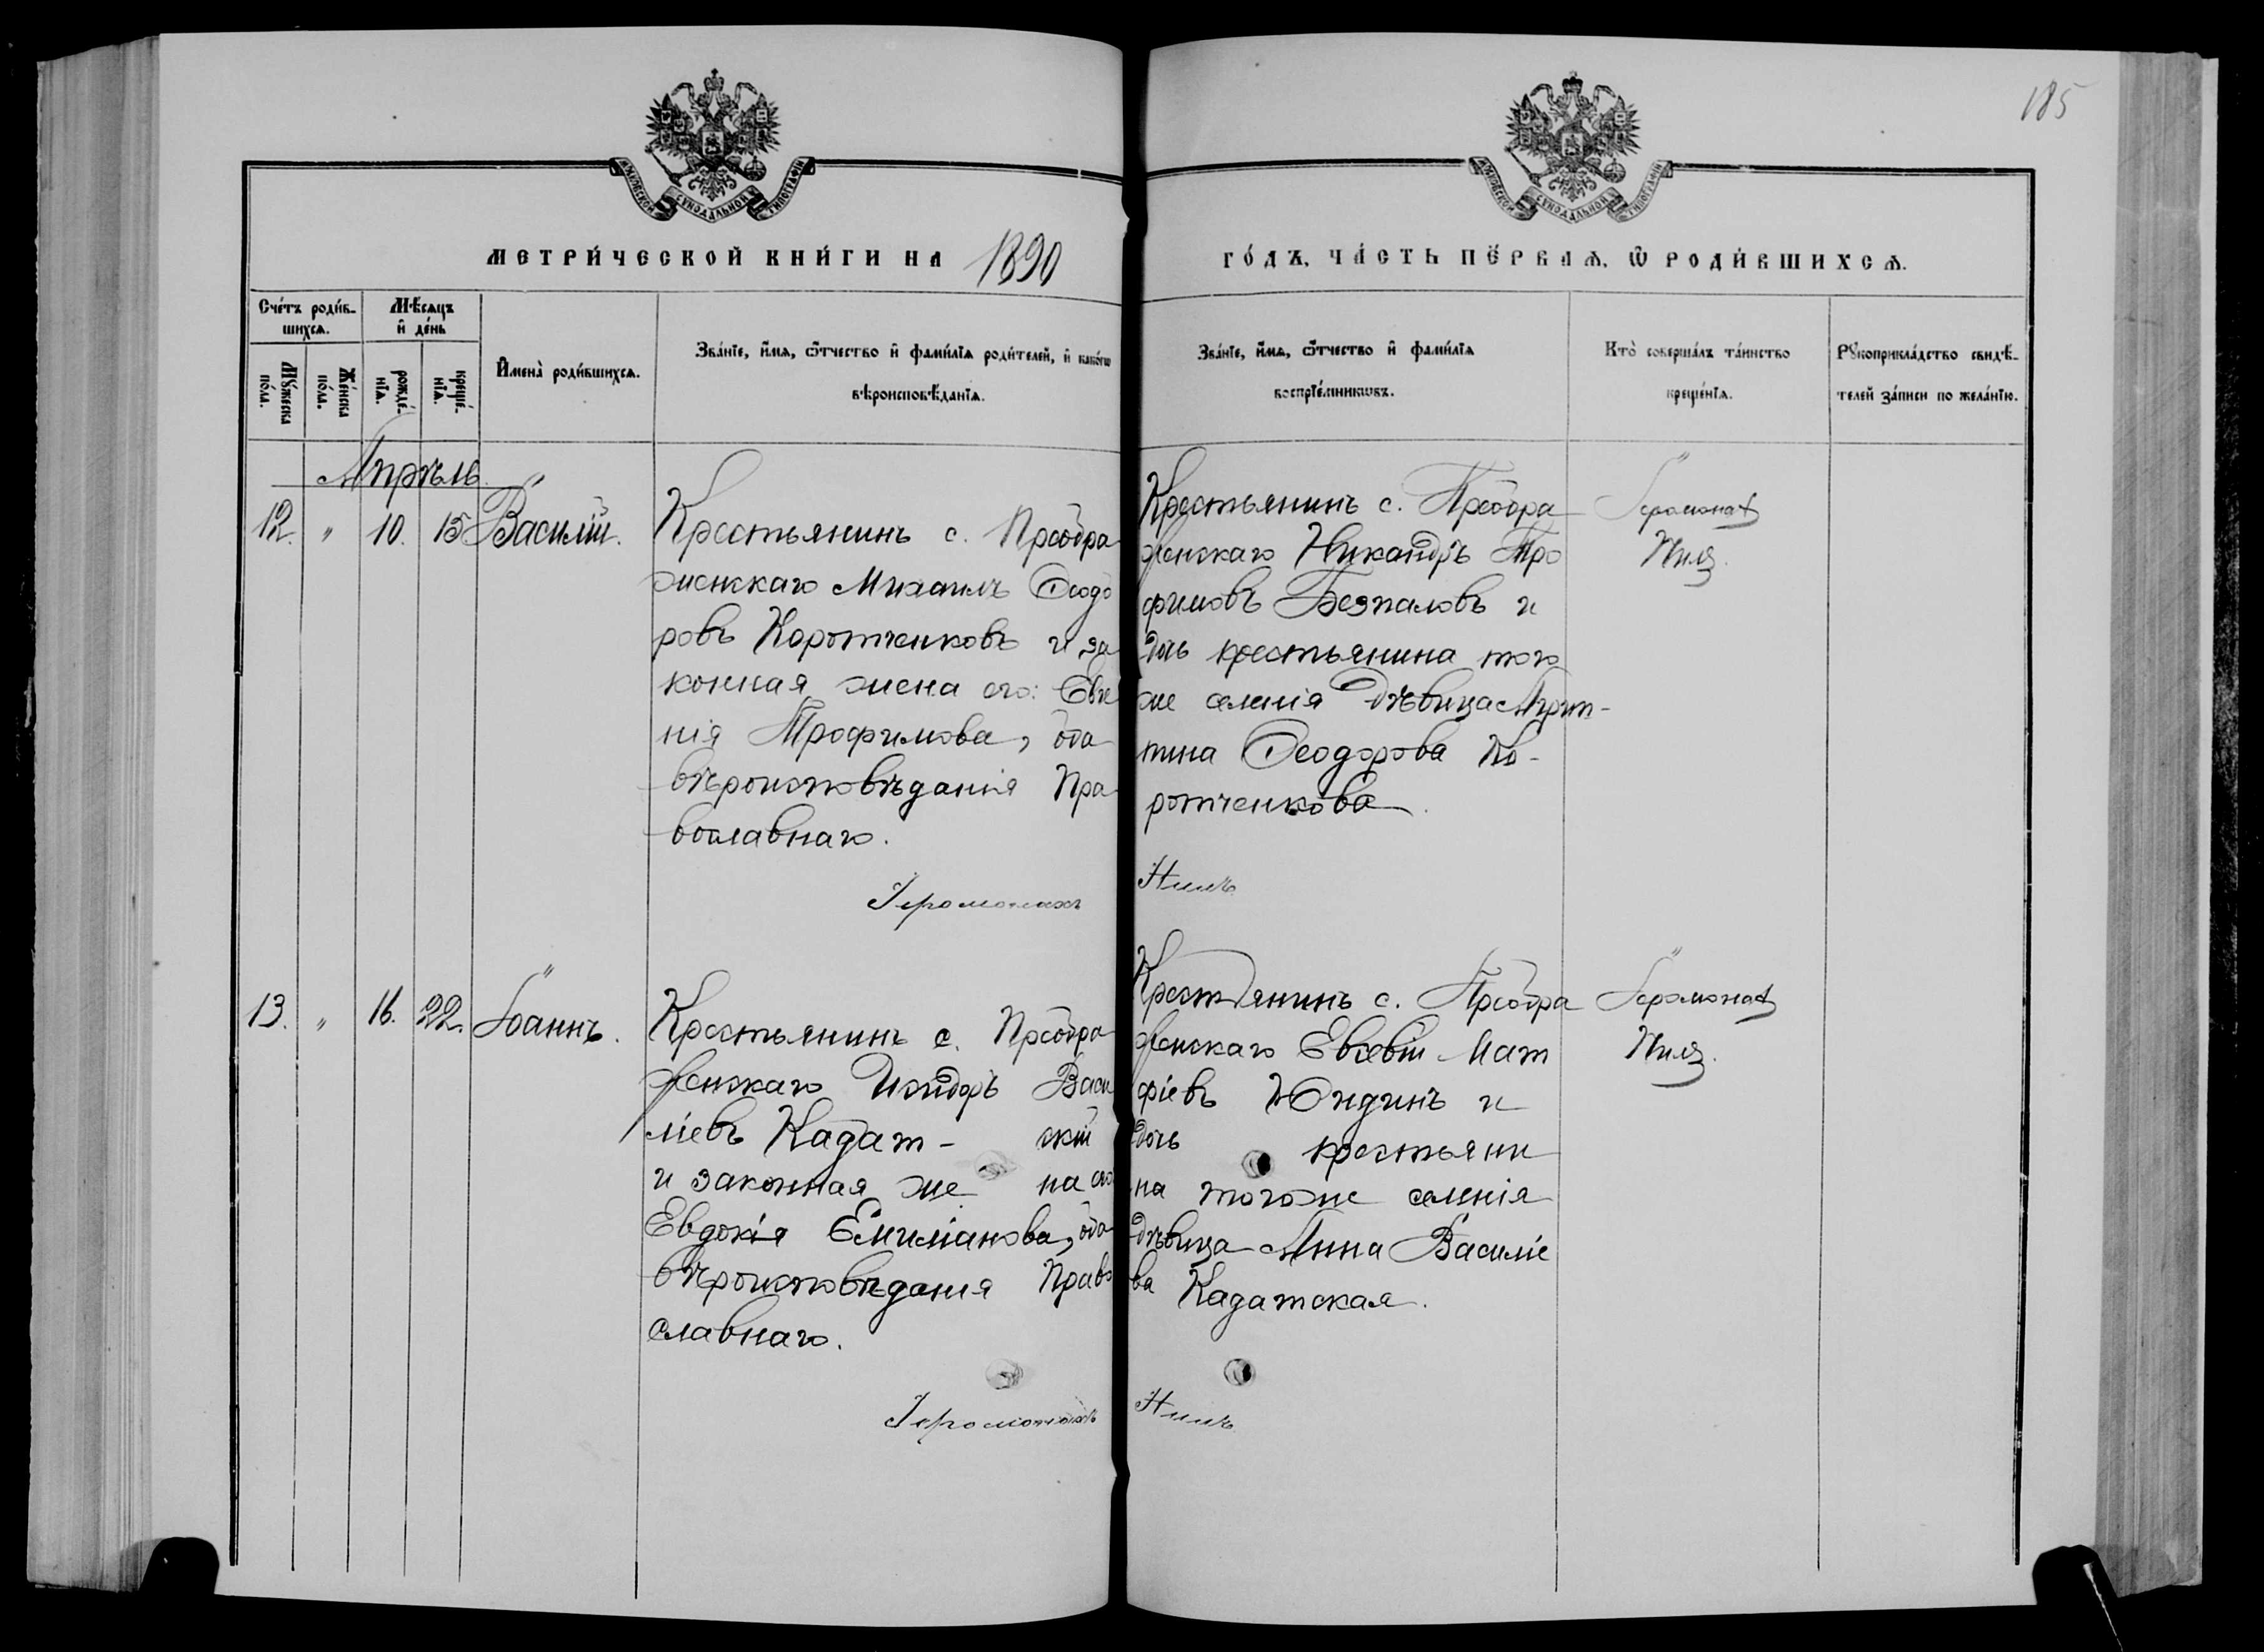 185
МОСКОВСКОЙ СУНОДАЛЬНОЙ ТИПОГРАФІИ
МОСКОВСКОЙ СУНОДАЛЬНОЙ ТИПОГРАФІИ
МЕТРИ́ЧЕСКОЙ КНИ́ГИ НА 1890
ГО́ДЪ, ЧА́СТЬ ПЕ́РВАѦ, Ѿ РОДИ́ВШИХСѦ.
Сче́тъ роди́в-
шихсѧ.
Мꙋ́жеска
по́ла.
Же́нска
по́ла.
Мѣ́сѧцъ
и҆ де́нь
рожде́-
нїѧ.
креще́-
нїѧ.
И҆мена̀ роди́вшихсѧ.
Зва́нїе, и҆́мѧ, ѻ҆́тчество и҆ фами́лїѧ роди́телей, и҆ како́гѡ
вѣроисповѣ́данїѧ.
Зва́нїе, и҆́мѧ, ѻ҆́тчество и҆ фами́лїѧ
воспрїе́мникѡвъ.
Кто̀ соверша́лъ та́инство
креще́нїѧ.
Рꙋкоприкла́дство свидѣ́-
телей за́писи по жела́нїю.
Апрѣль
12. " 10. 15 Василій.
Крестьянинъ с. Преобра
женскаго Михаилъ Ѳеодо
ровъ Коротченковъ и за
конная жена его: Евге
нія Трофимова, оба
вѣроисповѣданія Пра
вославнаго.
Іеромонахъ
Крестьянинъ с. Преобра
женскаго Никандръ Тро
фимовъ Безпаловъ и
дочь крестьянина того
же селенія дѣвица Агрип-
пина Ѳеодорова Ко-
ротченкова.
Нилъ
Іеромонах
Нилъ.
13. " 16. 22. Іоаннъ.
Крестьянинъ с. Преобра
женскаго Исидоръ Васи
ліевъ Кадат- скій
и законная же на его
Евдокія Емиліанова, оба
вѣроисповѣданія Право
славнаго.
Іеромонахъ
Крестьянинъ с. Преобра
женскаго Евсевій Мат
фіевъ Юндинъ и
дочь крестьяни
на тогоже селенія
дѣвица Анна Василіе
ва Кадатская.
Нилъ
Іеромонах
Нилъ.